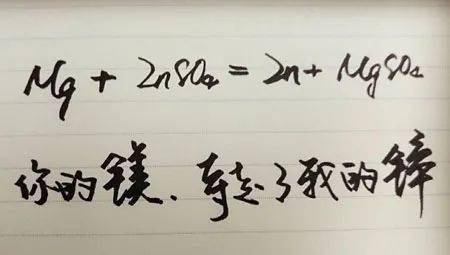 Mg + ZnSO₄ = Zn + MgSO₄
你的镁、牵走了我的锌